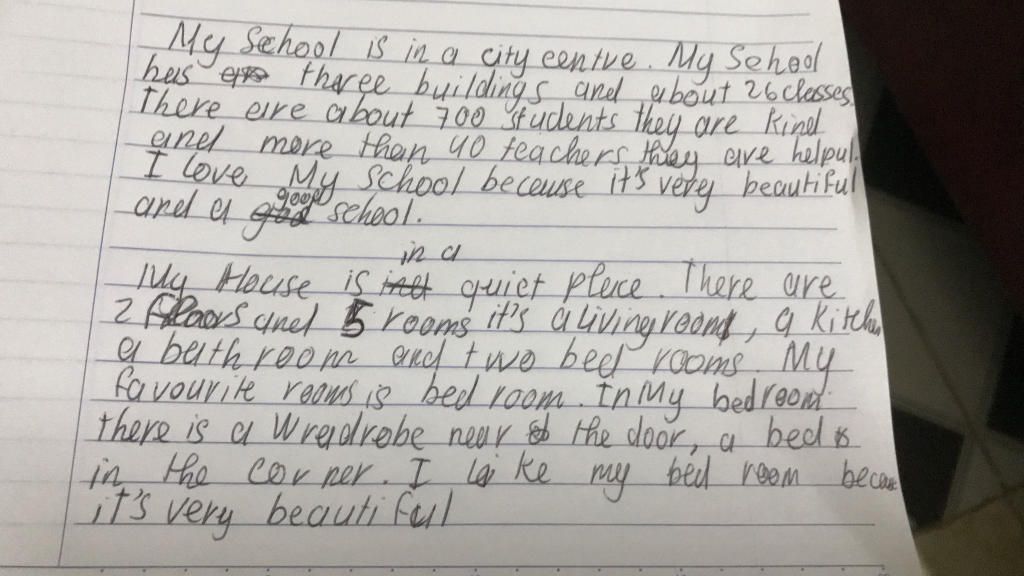 My School is in a city centre. My School
has three buildings and about 26 classes.
There are about 700 students they are kind
and more than 40 teachers they are helpul.
I love My school because it's very beautiful
and a good school.
My House is in a quiet place. There are
2 floors and 5 rooms it's a living room, a kitchen
a bathroom and two bed rooms. My
favourite rooms is bed room. In My bedroom
there is a Wreadrobe near the door, a bed is
in the corner. I like my bed room because
it's very beautiful